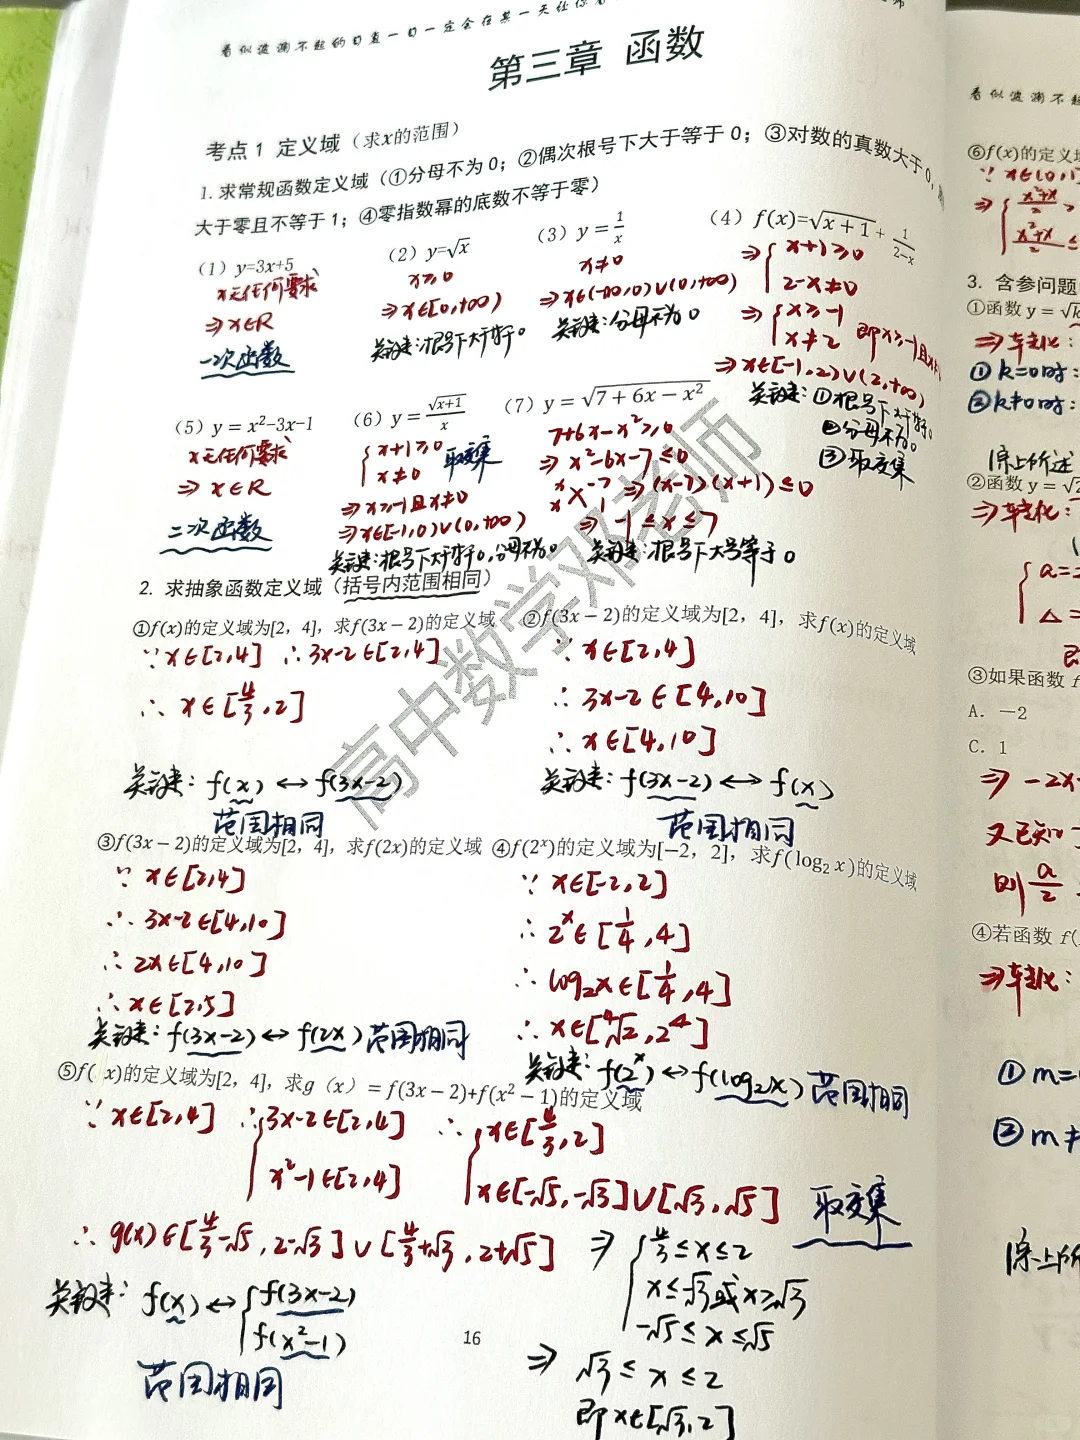 看似波澜不起的日复一日一定会在某一天让你看
第三章 函数
考点1 定义域（求x的范围）
1.求常规函数定义域（①分母不为0；②偶次根号下大于等于0；③对数的真数大于0，
大于零且不等于1；④零指数幂的底数不等于零）
（1）y=3x+5
x无任何要求
⇒x∈R
一次函数
（2）y=√x
x≥0
⇒x∈[0,+∞)
关键：根号下大于等于0
（3）y=1/x
x≠0
⇒x∈(-∞,0)∪(0,+∞)
关键：分母不为0
（4）f(x)=√(x+1)+1/(2-x)
⇒{x+1≥0
2-x≠0
⇒{x≥-1
x≠2 即x≥-1且x≠
⇒x∈[-1,2)∪(2,+∞)
关键：①根号下大于等于0
②分母不为0
③取交集
（5）y=x²-3x-1
x无任何要求
⇒x∈R
二次函数
（6）y=√(x+1)/x
{x+1≥0
x≠0 取交集
⇒x≥-1且x≠0
⇒x∈[-1,0)∪(0,+∞)
关键：根号下大于等于0,分母不为0
（7）y=√(7+6x-x²)
7+6x-x²≥0
⇒x²-6x-7≤0
x -7
x 1 ⇒(x-7)(x+1)≤0
⇒-1≤x≤7
关键：根号下大号等于0
2.求抽象函数定义域（括号内范围相同）
①f(x)的定义域为[2,4]，求f(3x-2)的定义域
∵x∈[2,4] ∴3x-2∈[2,4]
∴x∈[4/3,2]
关键：f(x)↔f(3x-2)
范围相同
②f(3x-2)的定义域为[2,4]，求f(x)的定义域
∵x∈[2,4]
∴3x-2∈[4,10]
∴x∈[4,10]
关键：f(3x-2)↔f(x)
范围相同
③f(3x-2)的定义域为[2,4]，求f(2x)的定义域
∵x∈[2,4]
∴3x-2∈[4,10]
∴2x∈[4,10]
∴x∈[2,5]
关键：f(3x-2)↔f(2x)范围相同
④f(2ˣ)的定义域为[-2,2]，求f(log₂x)的定义域
∵x∈[-2,2]
∴2ˣ∈[1/4,4]
∴log₂x∈[1/4,4]
∴x∈[⁴√2,2⁴]
关键：f(2ˣ)↔f(log₂x)范围相同
⑤f(x)的定义域为[2,4]，求g（x）=f(3x-2)+f(x²-1)的定义域
∵x∈[2,4] ∴{3x-2∈[2,4] ∴{x∈[4/3,2]
x²-1∈[2,4] x∈[-√5,-√3]∪[√3,√5] 取交集
∴g(x)∈[4/3-√5,2-√3]∪[4/3+√3,2+√5] ⇒{4/3≤x≤2
x≤-√3或x≥√3
-√5≤x≤√5
⇒√3≤x≤2
即x∈[√3,2]
关键：f(x)↔{f(3x-2)
f(x²-1)
范围相同
16
高中数学邓老师
看似波澜不起
⑥f(x)的定义
∵x∈(0,1
⇒{(x²+x)/2
(x²+x)/2≤
3.含参问题
①函数y=√
⇒转化：
①k=0时：
②k≠0时：
综上所述
②函数y=√
⇒转化：
{a=
△=
即
③如果函数f
A.-2
C.1
⇒-2x
又已知
则a/2
④若函数f(
⇒转化：
①m=
②m≠
综上所